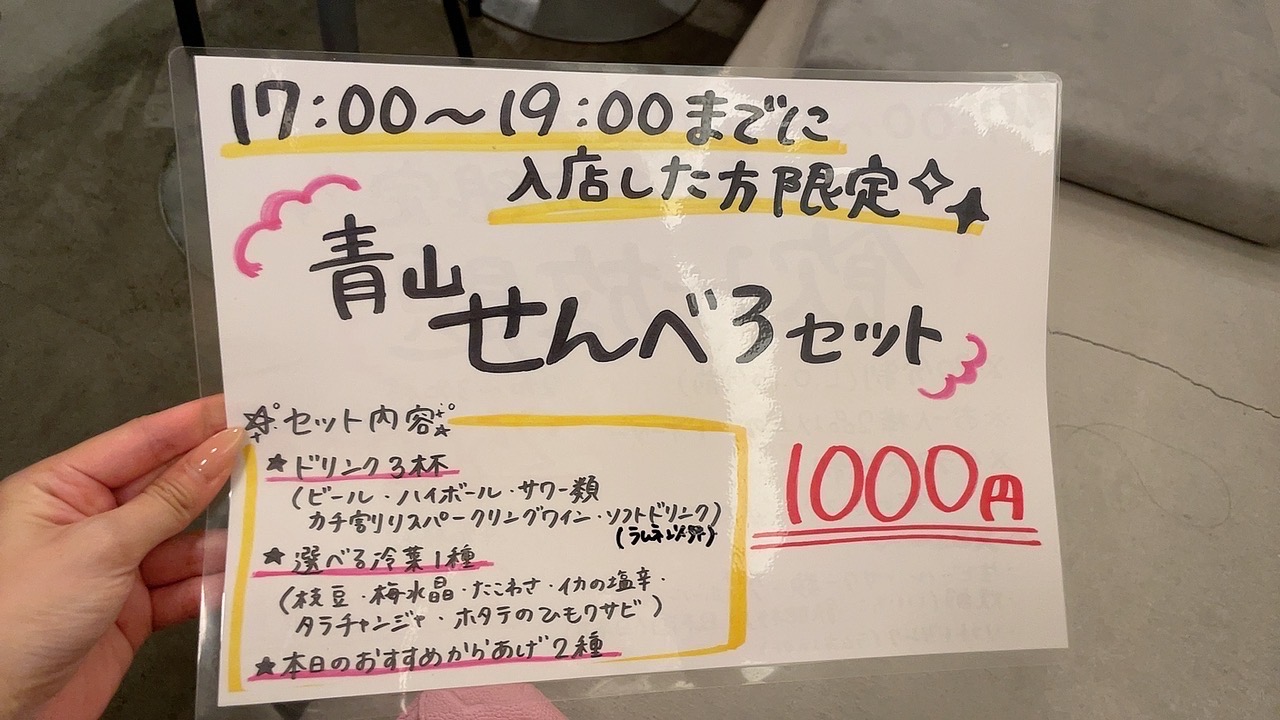 17:00～19:00までに
入店した方限定
青山せんべろセット
セット内容
★ドリンク3杯
(ビール・ハイボール・サワー類
カチ割りスパークリングワイン・ソフトドリンク)
(ラムネ以外)
★選べる冷菜1種
(枝豆・梅水晶・たこわさ・イカの塩辛・
タラチャンジャ・ホタテのひもワサビ)
★本日のおすすめからあげ2種
1000円